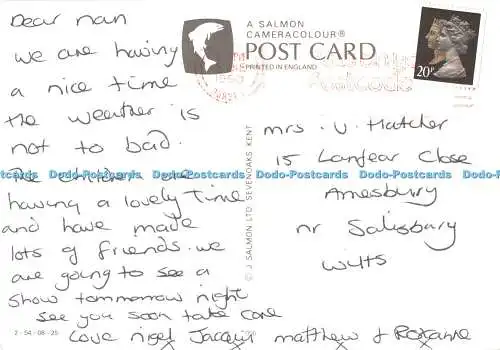 Dear nan
we are having
a nice time
the weather is
not to bad.
The children are
having a lovely time
and have made
lots of friends. we
are going to see a
show tommorrow night
see you soon take care
Love nigel Jacqui matthew & Roxanne
x x x
2-54-08-25
A SALMON
CAMERACOLOUR®
POST CARD
PRINTED IN ENGLAND
© J SALMON LTD SEVENOAKS KENT
20P
mrs. V. Hatcher
15 Lanfear Close
Amesbury
nr Salisbury
Wilts
Dodo-Postcards Dodo-Postcards Dodo-Postcards Dodo-Postcards